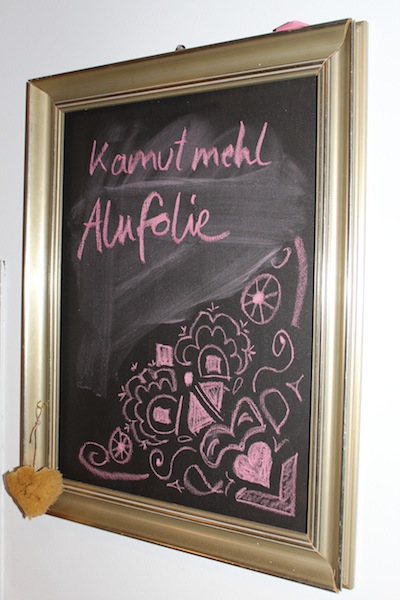 Kamutmehl
Alufolie